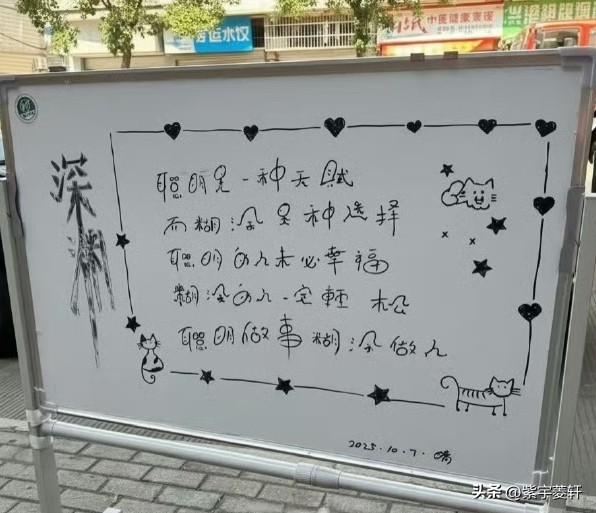 水饺
中医健康
深
聰明是一种天赋
而糊涂是种选择
聰明的人未必幸福
糊涂的人一定輕松
聰明做事糊涂做人
2025.10.7.晴
头条 @紫宇菱轩